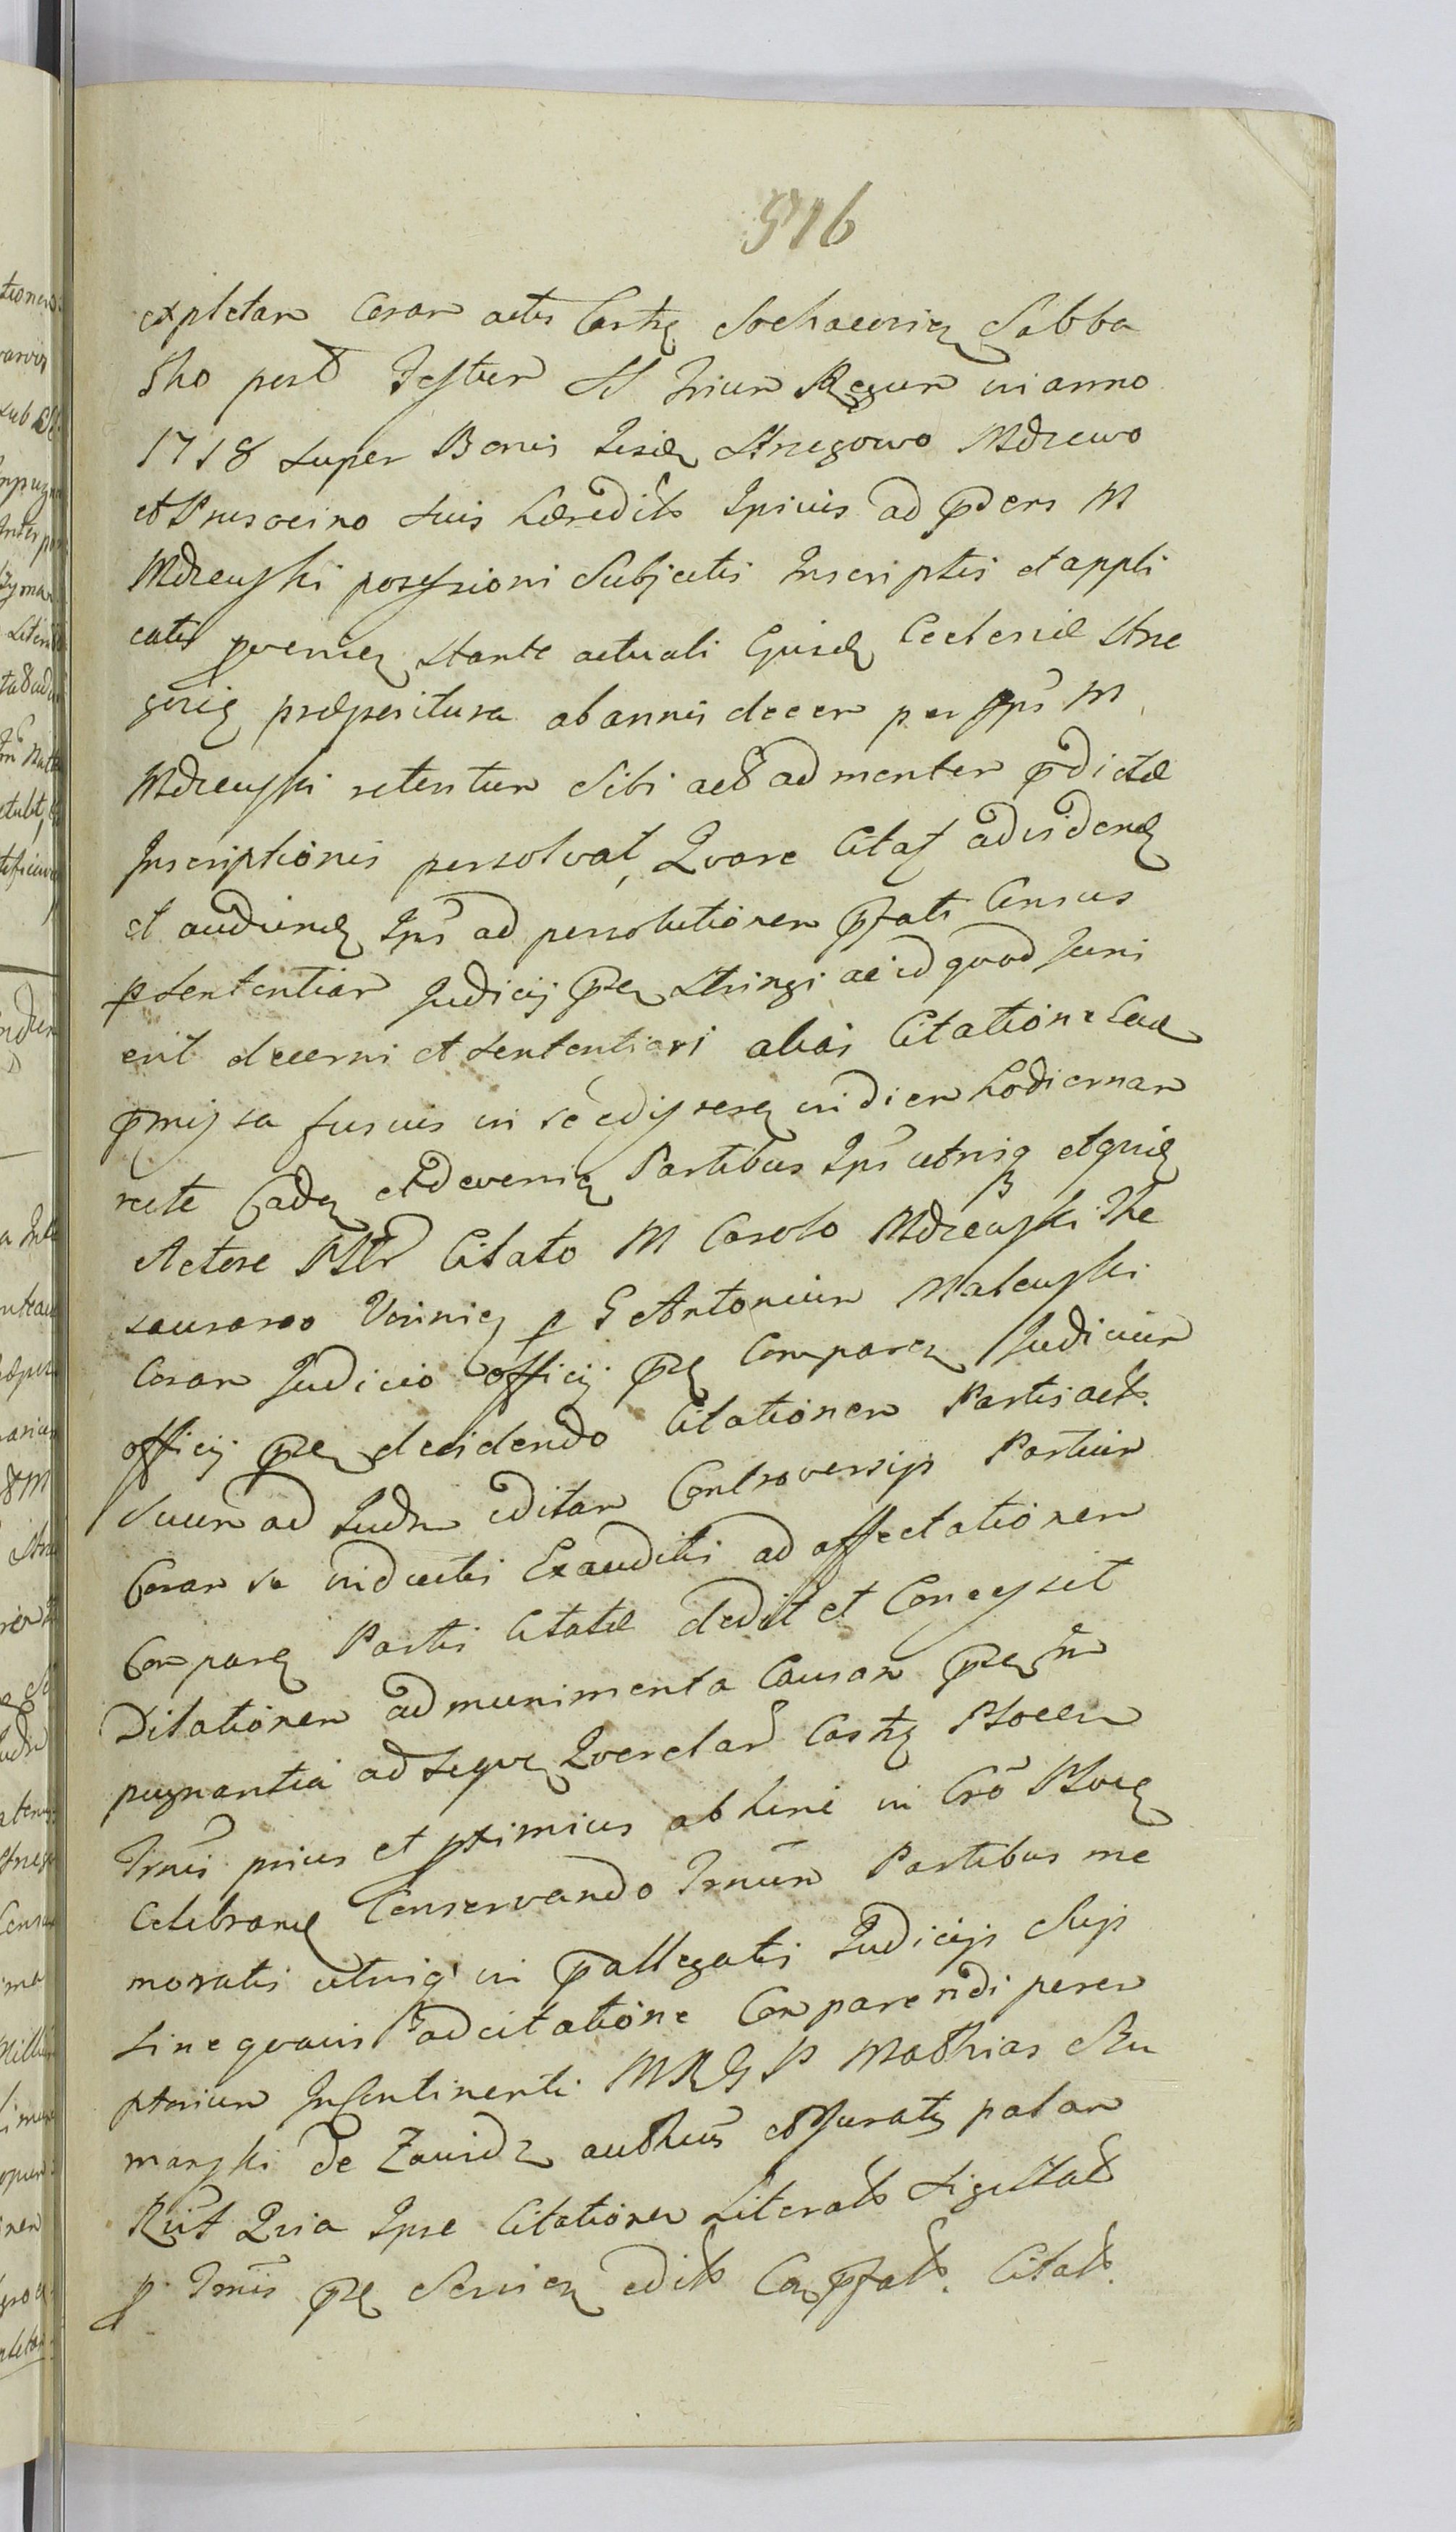 516
expletam Coram actis Castr Sochaczevien Sabba
tho post Festum SS Trium Regum in anno
1718 super Bonis Strzegowo Mdzewo
et Prusocino suis haeredits Ipsius ad pdens M
Mdzewski possessioni Subjectis Inscriptis et appli
catis provenien stante actuali Ejusd Ecclesiae Strze
govie praepositura ab annis decem per Ips M
Mdzewski retentum Sibi act ad mentem pdictae
Inscriptionis persolvat, Quare Citat ad vidend
et audiend Ips ad persolutionem pfati Census
p sententiam Judicij pn stringi ac id quod Juris
erit decerni et sententiari alias Citatione Ead
pmissa fusius in se edisseren in diem hodiernam
recte Caden et devenien Partibus Ips utrisq et quid
Actore Citato M Carolo Mdzewski The
saurario Visnien p G Antonium Malewski
Coram Judicio officij pn Comparen Judicium
officij pn decidendo Citationem Partis act
Suum ad Judm editam Controversijs Partium
Coram se inductis Exauditis ad affectationem
Comparen Partis Citatae dedit et Concessit
Dilationem ad munimenta Causam pn Im
pugnantia ad sequen Querelar Castr Plocen
Trmis prius et pximius ab hinc in Cro Ploce
Celebrand Conservando Trmum Partibus me
moratis utrisq in pallegatis Judicijs Suis
sine quavis adcitatione Comparendi perem
ptorium Incontinenti MRGD Mathias Szy
manski de Zawidz authus et Juratus palam
Rcit Quia Ipse Citationem Literats Sigillats
p Trmis pn Servien edits Con pfats Citats